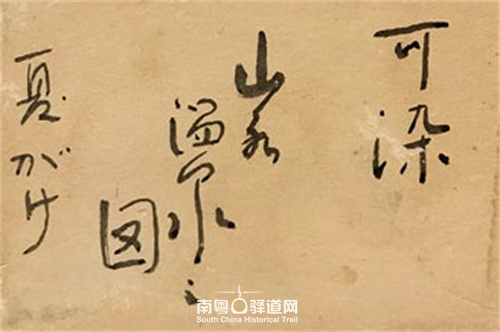 可染
山家
温泉之
図
夏がけ
南粤驿道网
South China Historical Trail